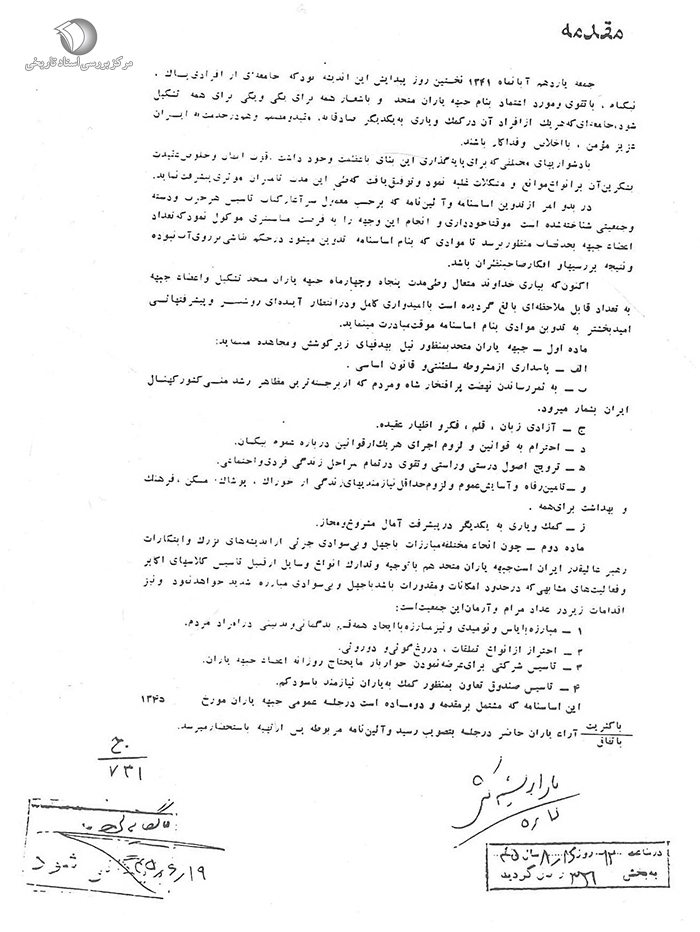 مرکز بررسی اسناد تاریخی
مقدمه
جمعه یازدهم آبانماه ۱۳۴۱ نخستین روز پیدایش این اندیشه بود که جامعه‌ای از افرادی پاک ،
نیکنام ، باتقوی و مورد اعتماد بنام جبهه یاران متحد و باشعار همه برای یکی ویکی برای همه تشکیل
شود، جامعه‌ای که هریک از افراد آن در کمک ویاری به یکدیگر صادقانه و هم در خدمت به ایران
عزیز مؤمن ، بااخلاص وفداکار باشند.
بادشواریهای مختلفی که برای پایه‌گذاری این بنای باعظمت وجود داشت ، قوت ایمان وخلوص عقیدت
برانواع موانع و مشکلات غلبه نمود وتوفیق یافت که طی این مدت تاسرحد موثری پیشرفت نماید.
در بدو امر از تدوین اساسنامه وآئین‌نامه که برحسب معمول سرآغاز کتاب تاسیس هرحزب ودسته
وجمعیتی شناخته شده است موقتا خودداری و انجام این وجهه را به فرصت مناسبتری موکول نمود که تعداد
اعضاء جبهه بحد نصاب منظور برسد تا موادی که بنام اساسنامه تدوین میشود درحکم نقاشی برروی آب نبوده
ونتیجه بررسیها و افکار صاحبنظران باشد.
اکنون که بیاری خداوند متعال وطی مدت پنجاه وچهارماه جبهه یاران متحد تشکیل واعضاء جبهه
به تعداد قابل ملاحظه‌ای بالغ گردیده است باامیدواری کامل ودرانتظار آینده‌ای روشنتر و پیشرفتهائی
امیدبخشتر به تدوین موادی بنام اساسنامه موقت مبادرت مینماید.
ماده اول ـ جبهه یاران متحد بمنظور نیل بهدفهای زیر کوشش ومجاهده مینماید:
الف ـ پاسداری از مشروطه سلطنتی و قانون اساسی .
ب ـ به ثمر رساندن نهضت پرافتخار شاه ومردم که از برجسته‌ترین مظاهر رشد ملی کشور کهنسال
ایران بشمار میرود.
ج ـ آزادی زبان ، قلم ، فکر و اظهار عقیده.
د ـ احترام به قوانین و لزوم اجرای هریک از قوانین درباره عموم بیکسان.
هـ ـ ترویج اصول درستی وراستی وتقوی درتمام مراحل زندگی فردی واجتماعی.
و ـ تامین رفاه وآسایش عموم و لزوم حداقل نیازمندیهای زندگی از خوراک ، پوشاک، مسکن ، فرهنگ
و بهداشت برای همه .
ز ـ کمک ویاری به یکدیگر درپیشرفت آمال مشروع ومجاز.
ماده دوم ـ چون انحاء مختلفه مبارزات باجهل وبی‌سوادی جزئی از اندیشه‌های بزرگ وابتکارات
رهبر عالیقدر ایران است جبهه یاران متحد هم باتوجیه وتدارک انواع وسایل از قبیل تاسیس کلاسهای اکابر
وفعالیت‌های مشابهی که درحدود امکانات ومقدورات باشد باجهل وبی‌سوادی مبارزه شدید خواهد نمود و نیز
اقدامات زیر در عداد مرام وآرمان این جمعیت است:
۱ ـ مبارزه بایاس ونومیدی و نیز مبارزه باایجاد همه‌قسم بدگمانی وبدبینی در افراد مردم.
۲ ـ احتراز از انواع تملقات ، دروغ‌گوئی و دوروئی.
۳ ـ تاسیس شرکتی برای عرضه نمودن خواربار مایحتاج روزانه اعضاء جبهه یاران.
۴ ـ تاسیس صندوق تعاون بمنظور کمک به یاران نیازمند باسود کم.
این اساسنامه که مشتمل بر مقدمه و دوماده است درجلسه عمومی جبهه یاران مورخ ۱۳۴۵
باکثریت
باتفاق
آراء یاران حاضر درجلسه بتصویب رسید وآئین‌نامه مربوطه پس از تهیه باستحضار میرسد.
ج
۷۳۱
بایگانی
۴۵/۶/۱۹
نمود
درساعت ۱۲ روز ۸/۱۶ سال ۴۵
به بخش ۳۲۱ گردید